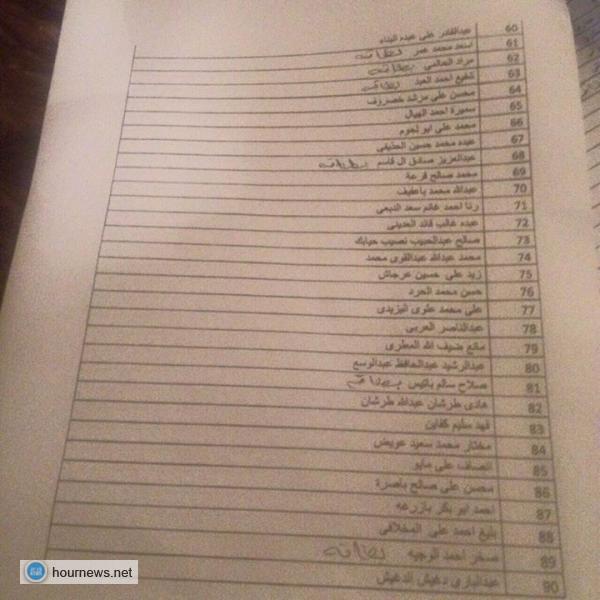 60 عبدالقادر على عبده البناء
61 اسعد محمد عمر بطاقه
62 مراد الصالمي بطاقه
63 شفيع احمد العبد بطاقه
64 محسن على مرشد خصروف
65 سميرة احمد الهيال
66 محمد على ابو لحوم
67 عبده محمد حسين الحذيفي
68 عبدالعزيز صادق ال قاسم بطاقه
69 محمد صالح قرعة
70 عبدالله محمد باعفيف
71 رنا احمد غانم سعد النبعى
72 عبده غالب قائد العديني
73 صالح عبدالحبيب نصيب حبابك
74 محمد عبدالله عبدالقوى محمد
75 زيد على حسين عرجاش
76 حسن محمد الحرد
77 على محمد علوى اليزيدى
78 عبدالناصر العربى
79 مانع ضيف الله المطرى
80 عبدالرشيد عبدالحافظ عبدالوسع
81 صلاح سالم باتيس بطاقه
82 هادى طرشان عبدالله طرشان
83 فهد سليم كفاين
84 مختار محمد سعيد عويض
85 انصاف على مايو
86 محسن على صالح باصرة
87 احمد ابو بكر بازرعه
88 بليغ احمد على المخلافى
89 صخر احمد الوجيه بطاقه
90 عبدالبارى دغيش الدغيش
hournews.net